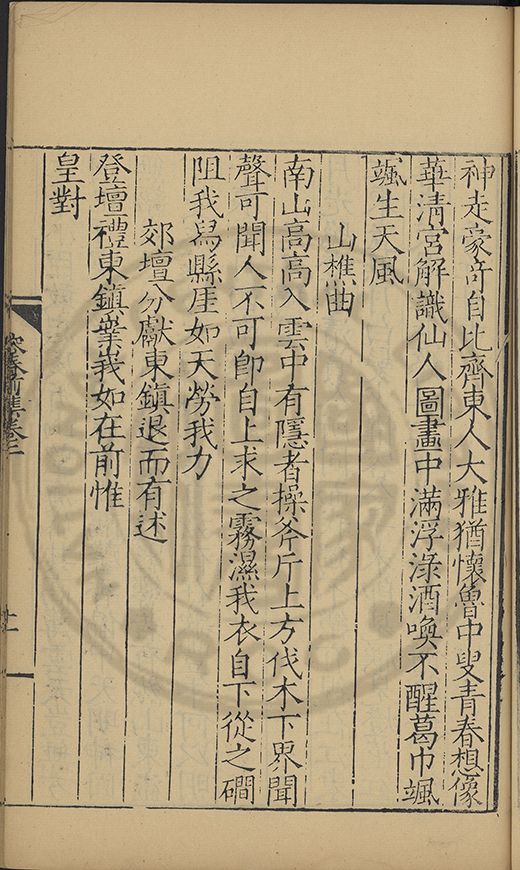 神走豪奇自比齊東人大雅猶懷魯中叟青春想像
華清宮解識仙人圖畫中滿浮淥酒喚不醒葛巾颯
颯生天風
山樵曲
南山高高入雲中有隱者操斧斤上方伐木下界聞
聲可聞人不可即自上求之霧濕我衣自下從之磵
阻我舄縣崖如天勞我力
郊壇分獻東鎮退而有述
登壇禮東鎮嶪峩如在前惟
皇對